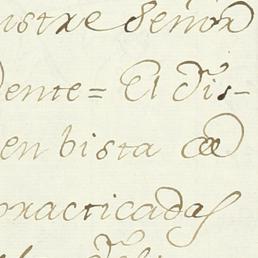 ustre Señor
dente = El Dis-
en bista de
practicadas